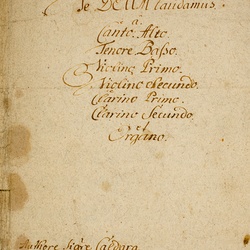 Te DEUM laudamus.
à
Canto. Alto.
Tenore Basso.
Violino Primo.
Violino Secundo.
Clarino Primo.
Clarino Secundo.
et
Organo.
Authore Sigre Caldara